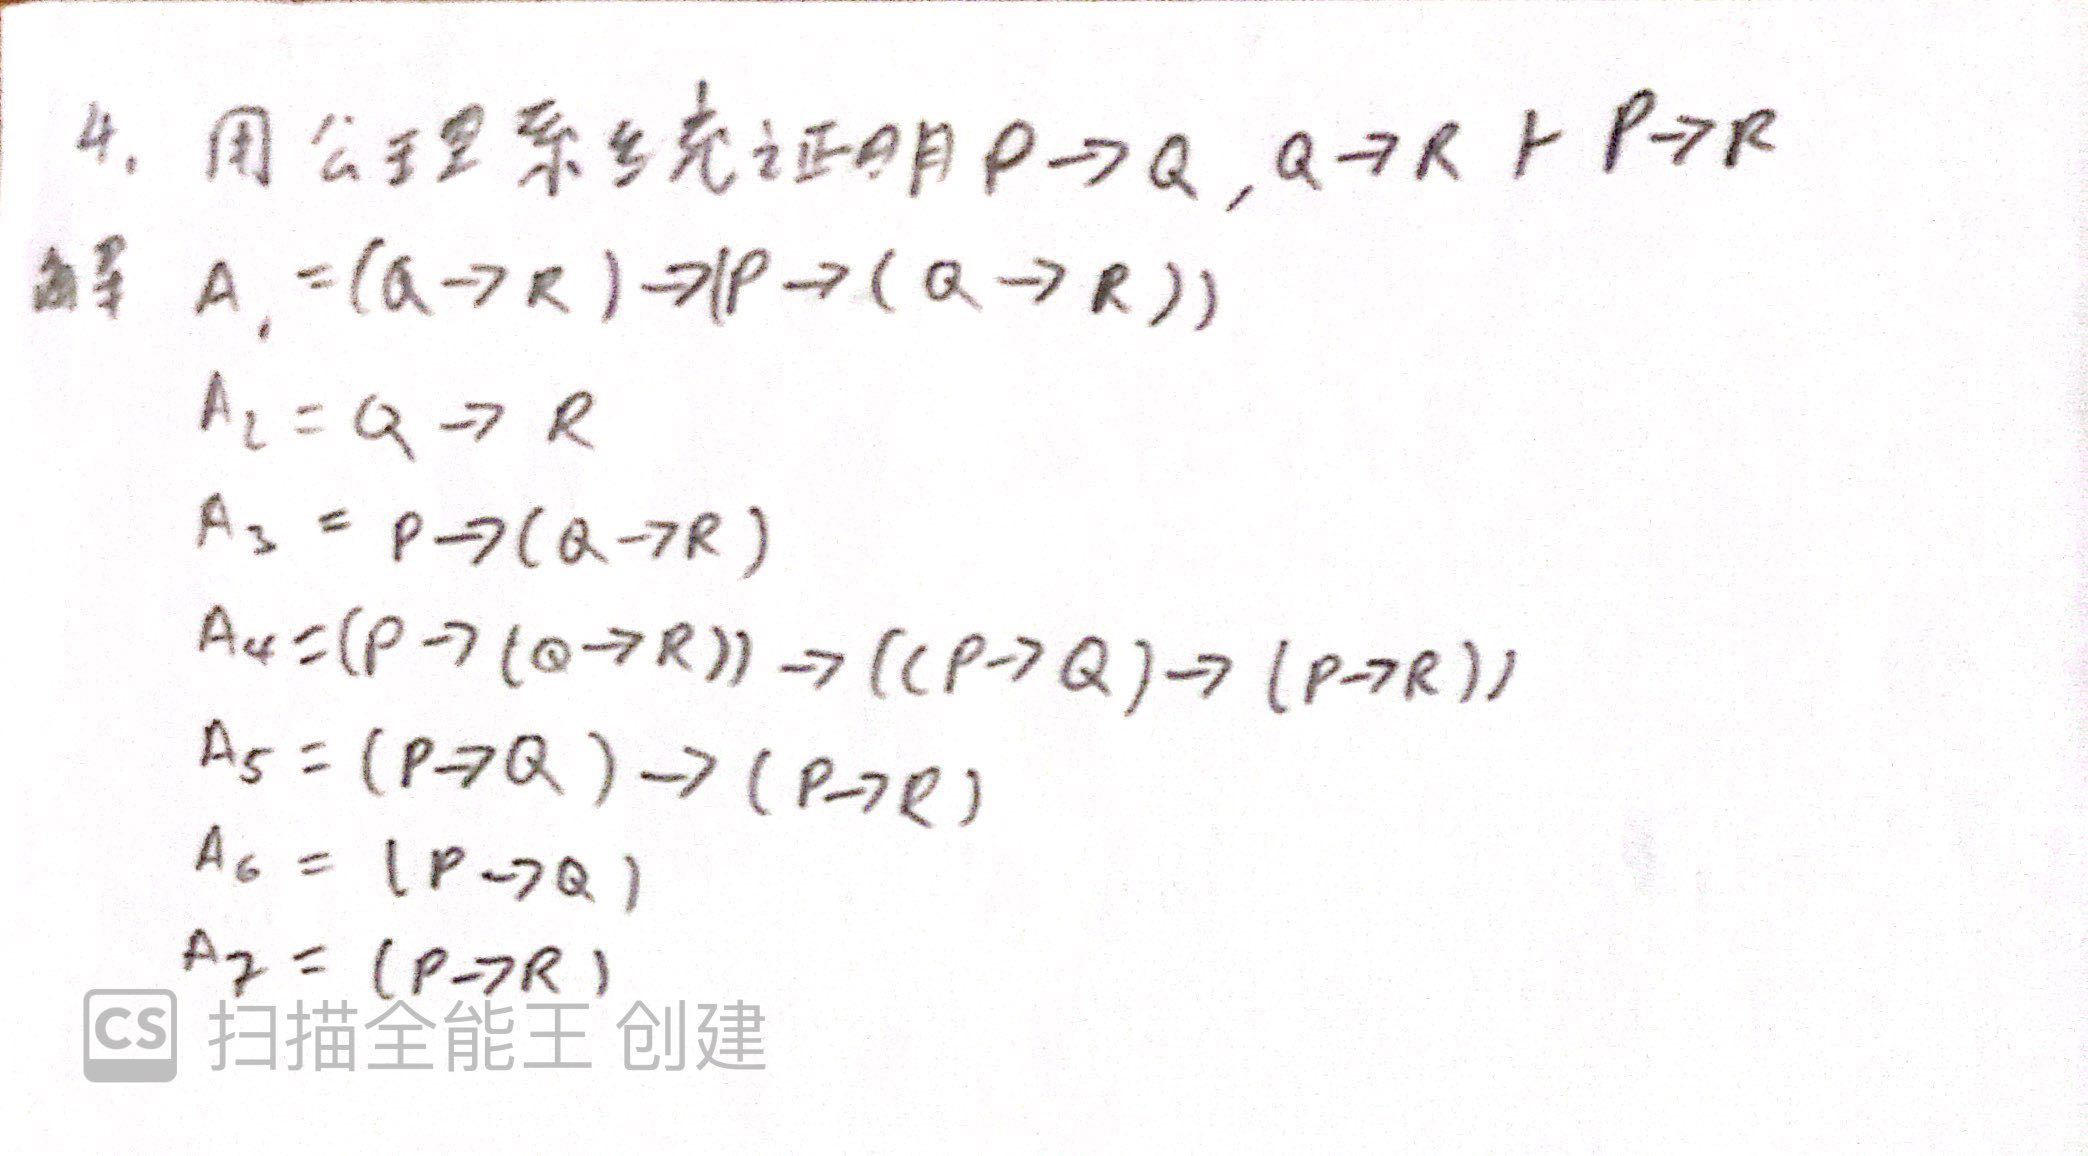 4. 用公理系统证明 P→Q, Q→R ⊢ P→R
解 A₁=(Q→R)→(P→(Q→R))
A₂=Q→R
A₃=P→(Q→R)
A₄=(P→(Q→R))→((P→Q)→(P→R))
A₅=(P→Q)→(P→R)
A₆=(P→Q)
A₇=(P→R)
CS 扫描全能王 创建